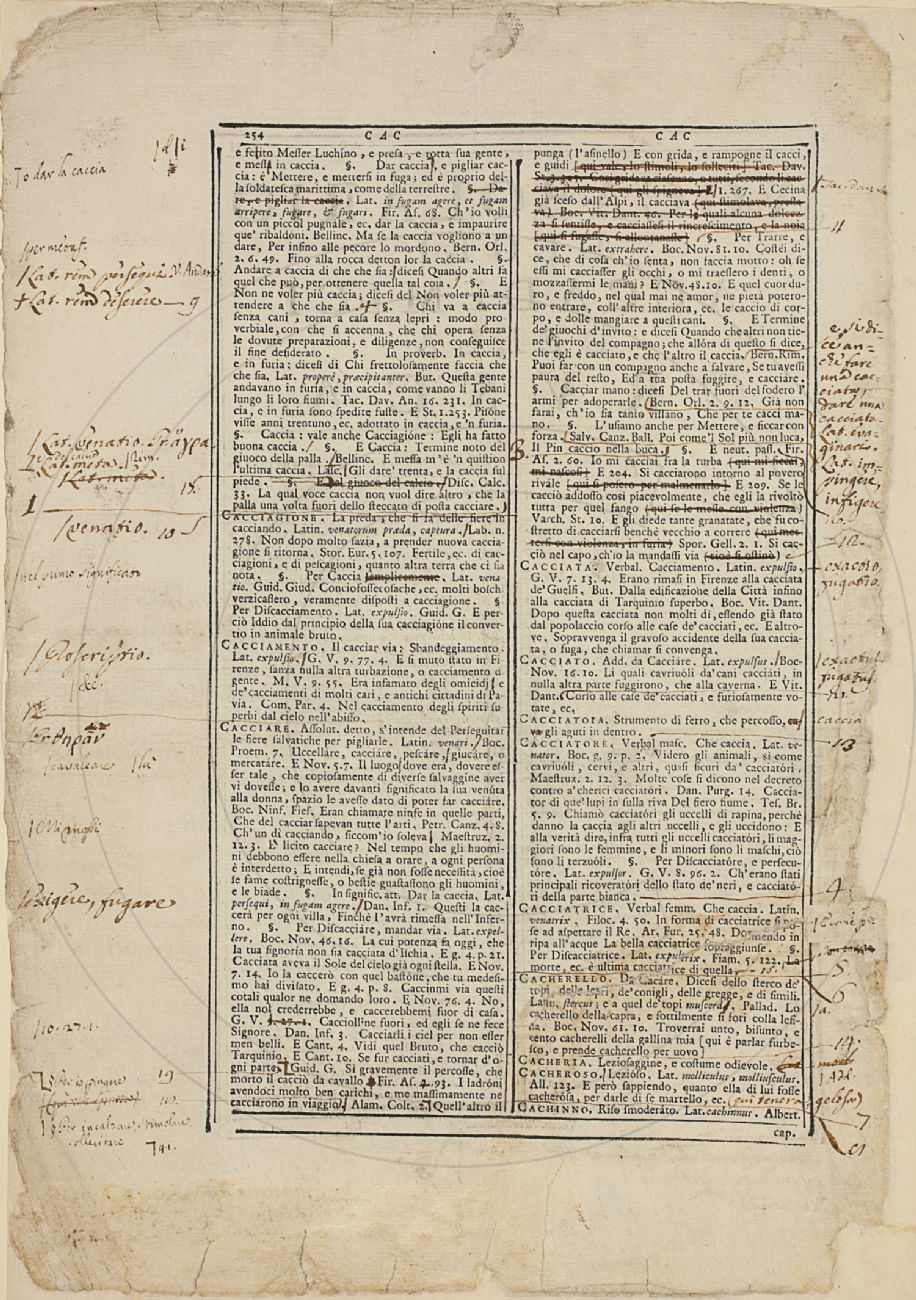 254 CAC CAC
e ferito Messer Luchino, e presa, e rotta sua gente,
e messa in caccia. §. Dar caccia, e pigliar cac-
cia: è Mettere, e mettersi in fuga; ed è proprio del-
la soldatesca marittima, come della terrestre. §. Da-
re, e pigliar la caccia. Lat. in fugam agere, et fugam
arripere, fugare, & fugari. Fir. As. 68. Ch'io volli
con un piccol pugnale, ec. dar la caccia, e impaurire
que' ribaldoni. Bellinc. Ma se la caccia vogliono a un
dare, Per infino alle pecore lo mordono. Bern. Orl.
2. 6. 49. Fino alla rocca detton lor la caccia. §.
Andare a caccia di che che sia: dicesi Quando altri fa
quel che può, per ottenere quella tal cosa. §. E
Non ne voler più caccia; dicesi del Non voler più at-
tendere a che che sia. §. Chi va a caccia
senza cani, torna a casa senza lepri: modo pro-
verbiale, con che si accenna, che chi opera senza
le dovute preparazioni, e diligenze, non conseguisce
il fine desiderato. §. In proverb. In caccia,
e in furia: dicesi di Chi frettolosamente faccia che
che sia. Lat. properè, præcipitanter. But. Questa gente
andavano in furia, e in caccia, come vanno li Tebani
lungo li loro fiumi. Tac. Dav. An. 16. 231. In cac-
cia, e in furia sono spedite fuste. E St. 1. 253. Pisone
visse anni trentuno, ec. adottato in caccia, e 'n furia.
§. Caccia: vale anche Cacciagióne: Egli ha fatto
buona caccia. §. E Caccia: Termine noto del
giuoco della palla. Bellinc. E messa m'è 'n quistion
l'ultima caccia. Lasc. Gli dare' trenta, e la caccia sul
piede. §. E del giuoco del calcio. Disc. Calc.
33. La qual voce caccia non vuol dire altro, che la
palla una volta fuori dello steccato di posta cacciare.
CACCIAGIONE. La preda, che si fa delle fiere in
cacciando. Latin. venatorum præda, captura. Lab. n.
278. Non dopo molto sazia, a prender nuova caccia-
gione si ritorna. Stor. Eur. 5. 107. Fertile, ec. di cac-
ciagioni, e di pescagioni, quanto altra terra che si sia
nota. §. Per Caccia semplicemente. Lat. vena-
tio. Guid. Giud. Conciofossecosache, ec. molti bosch
verzicassero, veramente disposti a cacciagione. §
Per Discacciamento. Lat. expulsio. Guid. G. E per-
ciò Iddio dal principio della sua cacciagióne il conver-
tio in animale bruto.
CACCIAMENTO. Il cacciar via: Sbandeggiamento.
Lat. expulsio. G. V. 9. 77. 4. E si muto stato in Fi-
renze, sanza nulla altra turbazione, o cacciamento d
gente. M. V. 9. 55. Era infamato degli omicidj e
de' cacciamenti di molti cari, e antichi cittadini di Pa-
via. Com. Par. 4. Nel cacciamento degli spiriti su-
perbi dal cielo nell'abisso.
CACCIARE. Assolut. detto, s'intende del Perseguitar
le fiere salvatiche per pigliarle. Latin. venari. Boc.
Proem. 7. Uccellare, cacciáre, pescáre, giucáre, o
mercatáre. E Nov. 5. 7. Il luogo dove era, dovere es-
ser tale, che copiosamente di diverse salvaggine aver
vi dovesse; e lo avere davanti significato la sua venúta
alla donna, spazio le avesse dato di poter far cacciáre.
Boc. Ninf. Fies. Eran chiamare ninfe in quelle parti,
Che del cacciar sapevan tutte l'arti. Petr. Canz. 4. 8.
Ch'un dì cacciando, siccom'io soleva. Maestruz. 2.
12. 3. E' licito cacciare? Nel tempo che gli huomi-
ni debbono essere nella chiesa a orare, a ogni persona
è interdetto; E intendi, se già non fosse necessità, cioè
se fame costrignesse, o bestie guastassono gli huomini,
e le biade. §. In signific. att. Dar la caccia, Lat.
persequi, in fugam agere. Dan. Inf. 1. Questi la cac-
cerà per ogni villa, Finchè l'avrà rimessa nell'Infer-
no. §. Per Discacciáre, mandar via. Lat. expel-
lere. Boc. Nov. 46. 16. La cui potenza fa oggi, che
la tua signoría non sia cacciata d'Ischia. E g. 4. p. 21.
Cacciata aveva il Sole del cielo già ogni stella. E Nov.
7. 14. Io la caccerò con quel bastóne, che tu medesi-
mo hai divisato. E g. 4. p. 8. Caccinmi via questi
cotali qualor ne domando loro. E Nov. 76. 4. No,
ella nol crederrebbe, e caccerebbemi fuor di casa.
G. V. 8. 27. 1. Cacciollne fuori, ed egli se ne fece
Signore. Dan. Inf. 3. Cacciarli i ciel per non esser
men belli. E Cant. 4. Vidi quel Bruto, che cacciò
Tarquinio. E Cant. 10. Se fur cacciati, e tornar d'o-
gni parte. Guid. G. Si gravemente il percosse, che
morto il cacciò da cavallo Fir. As. 2. 93. I ladróni
avendoci molto ben carichi, e me massimamente ne
cacciarono in viaggio. Alam. Colt. 2. Quell'altro il
punga (l'asinello) E con grida, e rampogne il cacci,
e guidi [qui vale, lo stimoli, lo solleciti] Tac. Dav.
E 1. 267. E Cecina
già sceso dall'Alpi, il cacciava (qui stimolava, pressa-
va) Boc. Vit. Dant. 46. Per le quali alcuna dolcez-
za si sentisse, e cacciassesi il rincrescimento, e la noia
[qui si fugasse, si allontanasse] §. Per Trarre, e
cavare. Lat. extrahere. Boc. Nov. 81. 10. Costei di-
ce, che di cosa ch'io senta, non faccia motto: oh se
essi mi cacciasser gli occhi, o mi traessero i denti, o
mozzassermi le mani? E Nov. 48. 10. E quel cuor du-
ro, e freddo, nel qual mai ne amor, ne pietà potero-
no entrare, coll'altre interiora, ec. le caccio di cor-
po, e dolle mangiare a questi cani. §. E Termine
de' giuochi d'invito: e dicesi Quando che altri non tie-
ne l'invito del compagno; che allóra di questo si dice,
che egli è cacciato, e che l'altro il caccia. Bern. Rim.
Puoi far con un compagno anche a salvare, Se tu avessi
paura del resto, Ed a tua posta fuggire, e cacciáre.
§. Cacciar mano: dicesi Del trar fuori del fodero l'
armi per adoperarle. Bern. Orl. 2. 9. 12. Già non
farai, ch'io sia tanto villano, Che per te cacci ma-
no. §. L'usiamo anche per Mettere, e ficcar con
forza. Salv. Canz. Ball. Poi come'l Sol più non luca,
Il Pin caccio nella buca. §. E neut. pass. Fir.
As. 2. 60. Io mi cacciai fra la turba (qui mi ficcai,
mi nascosi) E 204. Si cacciarono intorno al povero
rivále [qui si posero per malmenarlo] E 209. Se le
cacciò addossò così piacevolmente, che egli la rivoltò
tutta per quel fango (qui se le messe con violenza)
Varch. St. 10. E gli diede tante granatate, che fu co-
stretto di cacciarsi benchè vecchio a correre (qui met-
tersi con violenza, in furia) Spor. Gell. 2. 1. Si cac-
ciò nel capo, ch'io la mandassi via (cioè si ostinò)
CACCIATA. Verbal. Cacciamento. Latin. expulsio.
G. V. 7. 13. 4. Erano rimasi in Firenze alla cacciata
de' Guelfi. But. Dalla edificazione della Città infino
alla cacciata di Tarquinio superbo. Boc. Vit. Dant.
Dopo questa cacciata non molti dì, essendo già stato
dal popolaccio corso alle case de' cacciati, ec. E altro-
ve. Sopravvenga il gravoso accidente della sua caccia-
ta, o fuga, che chiamar si convenga.
CACCIATO. Add. da Cacciáre. Lat. expulsus. Boc-
Nov. 16. 10. Li quali cavriuóli da' cani cacciati, in
nulla altra parte fuggirono, che alla caverna. E Vit.
Dant. Corso alle case de' cacciati, e furiosamente vo-
tate, ec.
CACCIATOIA. Strumento di ferro, che percosso, ca-
va gli aguti in dentro.
CACCIATORE. Verbal masc. Che caccia. Lat. ve-
nator. Boc. g. 9. p. 2. Videro gli animali, sì come
cavriuóli, cervi, e altri, quasi sicuri da' cacciatóri.
Maestruz. 2. 12. 3. Molte cose si dicono nel decreto
contro a' cherici cacciatóri. Dan. Purg. 14. Caccia-
tor di que' lupi in sulla riva Del fiero fiume. Tes. Br.
5. 9. Chiamò cacciatóri gli uccelli di rapina, perchè
danno la caccia agli altri uccelli, e gli uccidono: E
alla verità dire, infra tutti gli uccelli cacciatóri, li mag-
giori sono le femmine, e li minori sono li maschi, ciò
sono li terzuóli. §. Per Discacciatóre, e persecu-
tóre. Lat. expulsor. G. V. 8. 96. 2. Ch'erano stati
principali ricoveratóri dello stato de' neri, e cacciató-
ri della parte bianca.
CACCIATRICE. Verbal femm. Che caccia. Latin.
venatrix. Filoc. 4. 50. In forma di cacciatrice si po-
se ad aspettare il Re. Ar. Fur. 25. 48. Dormendo in
ripa all'acque La bella cacciatrice sopraggiunse. §.
Per Discacciatrice. Lat. expultrix. Fiam. 5. 122. La
morte, ec. è ultima cacciatrice di quella
CACHERELLO. Da Cacáre. Dicesi dello sterco de'
topi, delle lepri, de' conigli, delle gregge, e di simili.
Latin. stercus; e a quel de' topi muscerda. Pallad. Lo
cacherello della capra, e sottilmente si fori colla lesi-
na. Boc. Nov. 61. 10. Troverrai unto, bisunto, e
cento cacherelli della gallina mia [qui è parlar furbe-
sco, e prende cacherello per uovo]
CACHERIA. Leziosaggine, e costume odievole.
CACHEROSO. Lezióso. Lat. molliculus, molliusculus.
All. 123. E però sappiendo, quanto ella di lui fosse
cacherósa, per darle di se martello, ec. (qui tenera
CACHINNO. Riso smoderáto. Lat. cachinnus. Albert.
cap.
To dar la caccia
per metaf.
Lat. rem persequi
Lat. rem deserere 9
Lat. venatio.
18.
venatio. 10
nel primo significato
&c.
cavalcare
exigere, fugare
10. 27. 1.
19
10.
11
e si di-
ce an-
che fare
una cac-
ciata,
dare una
cacciata.
Lat. im-
pingere,
infigere
12.
fugatio.
caccia
13
4.
15.
5.
6
14.
gelosa)
7